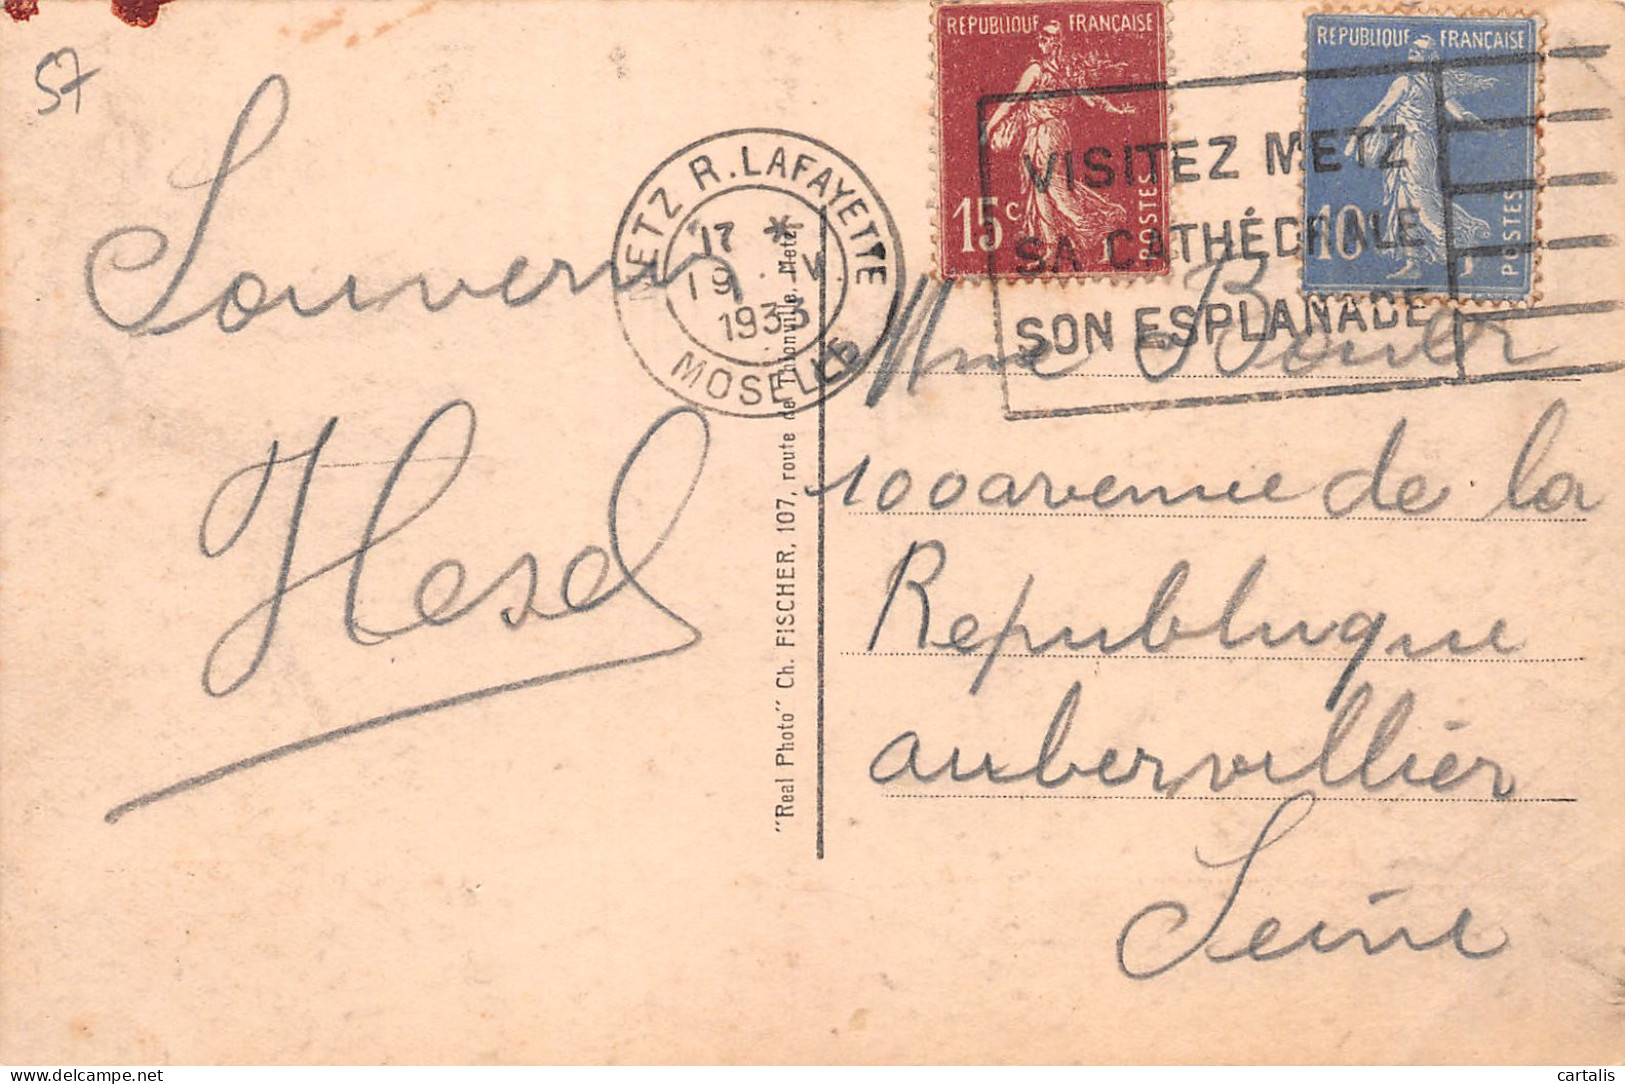 57
Souvenir
Hesd
METZ R. LAFAYETTE
17 *
19 V
1933
MOSELLE
RÉPUBLIQUE FRANÇAISE
15c
POSTES
RÉPUBLIQUE FRANÇAISE
10c
POSTES
VISITEZ METZ
SA CATHÉDRALE
SON ESPLANADE
"Real Photo" Ch. FISCHER, 107, route de Thionville, Metz.
Mme
100 avenue de la
Republuque
aubervillier
Seine
cartalis